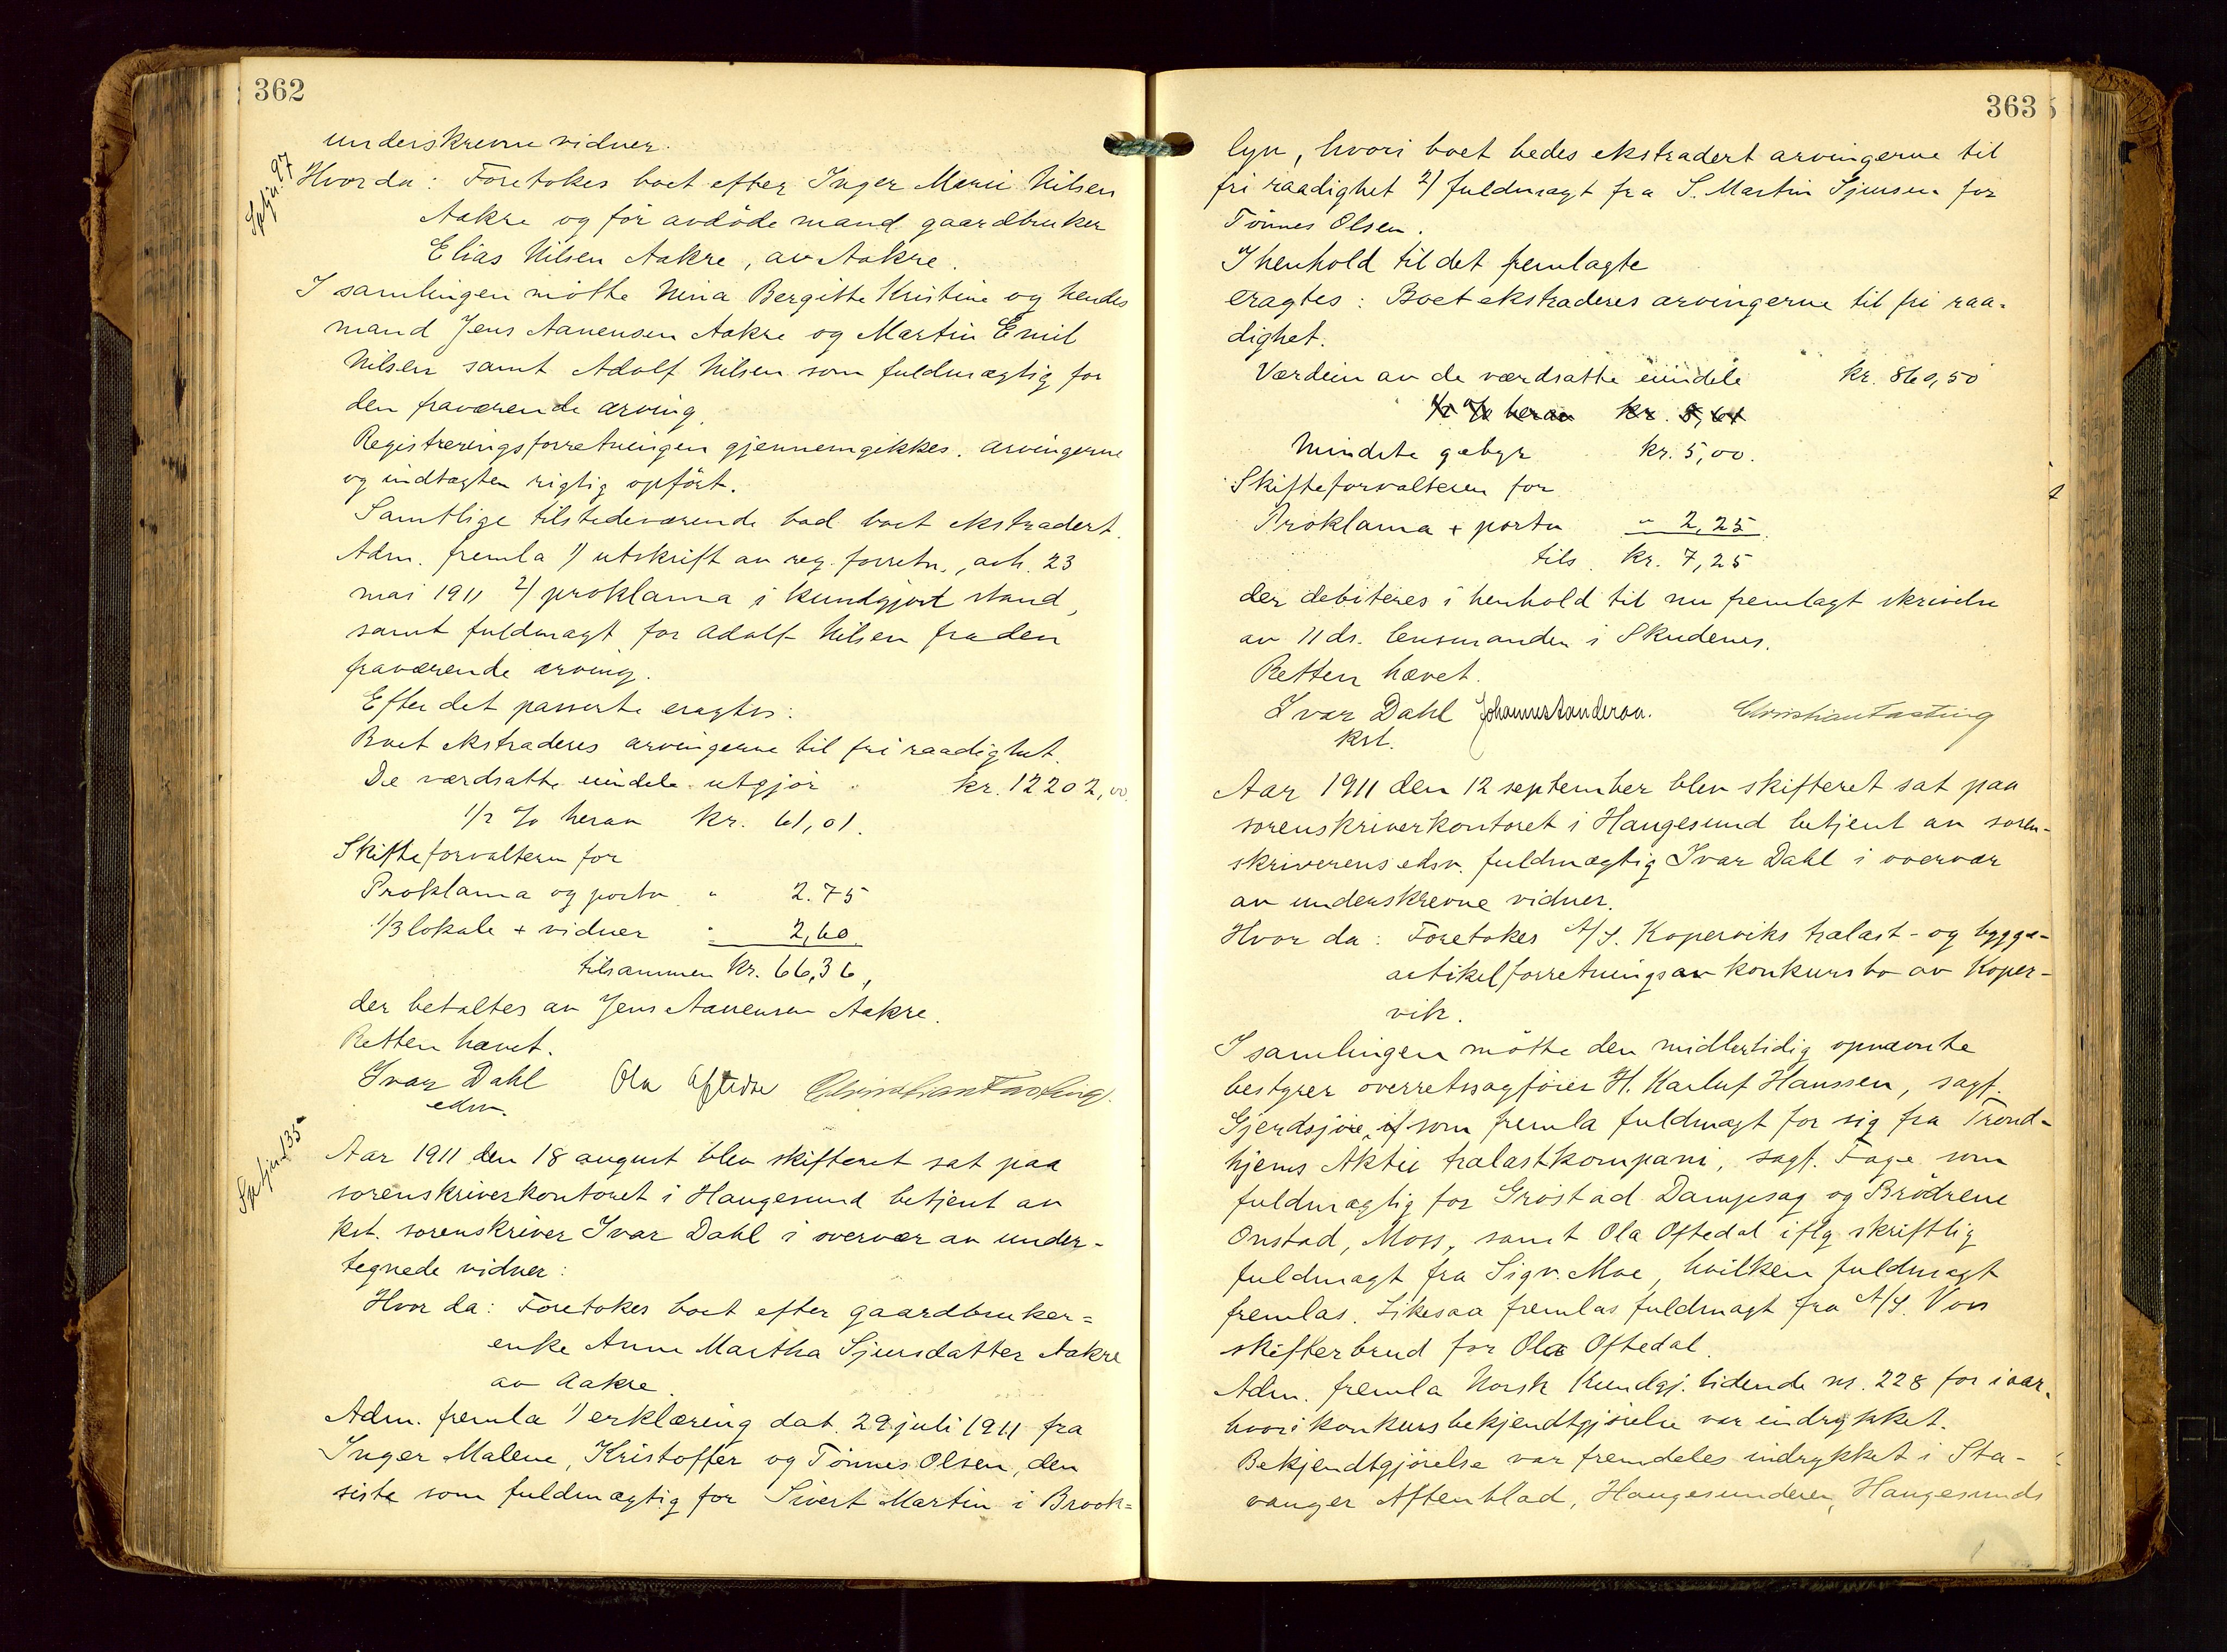 362
underskrevne vidner.
Hvor da: Foretokes boet efter Inger Marie Nilsen
Aakre og før avdøde mand gaardbruker
Elias Nilsen Aakre, av Aakre.
I samlingen møtte Nina Bergitte Kristine og hendes
mand Jens Aanensen Aakre og Martin Emil
Nilsen samt Adolf Nilsen som fuldmægtig for
den fraværende arving.
Registreringsforretningen gjennemgikkes. Arvingerne
og indtægten rigtig opført.
Samtlige tilstedeværende bad boet ekstradert.
Adm. fremla 1) utskrift av reg. forretn., avh. 23
mai 1911 2) proklama i kundgjort stand,
samt fuldmagt for Adolf Nilsen fra den
fraværende arving.
Efter det passerte eragtes:
Boet ekstraderes arvingerne til fri raadighet.
De værdsatte eiendele utgjør kr. 12202,00.
1/2 % herav kr. 61,01.
Skifteforvalteren for
Proklama og porto " 2.75
1/3 lokale + vidner " 2,60
tilsammen kr. 66,36,
der betaltes av Jens Aanensen Aakre.
Retten hævet.
Ivar Dahl Ola Christian Fasting.
edsv.
Aar 1911 den 18 august blev skifteret sat paa
sorenskriverkontoret i Haugesund betjent av
kst. sorenskriver Ivar Dahl i overvær av under-
tegnede vidner:
Hvor da: Foretokes boet efter gaardbruker=
enke Anne Martha Sjursdatter Aakre
av Aakre.
Adm. fremla 1) erklæring dat. 29. juli 1911 fra
Inger Malene, Kristoffer og Tønnes Olsen, den
siste som fuldmægtig for Sivert Martin i Brook=
363
lyn, hvori boet bedes ekstradert arvingerne til
fri raadighet 2) fuldmagt fra S. Martin Sjursen for
Tønnes Olsen.
I henhold til det fremlagte
eragtes: Boet ekstraderes arvingerne til fri raa-
dighet.
Værdien av de værdsatte eiendele kr. 860,50
1/2 % herav kr.
Mindste gebyr kr. 5,00.
Skifteforvalteren for
Proklama + porto " 2,25
tils. kr. 7,25
der debiteres i henhold til nu fremlagt skrivelse
av 11 ds. lensmanden i Skudenes.
Retten hævet.
Ivar Dahl Johannes Anderson. Christian Fasting
kst.
Aar 1911 den 12 september blev skifteret sat paa
sorenskriverkontoret i Haugesund betjent av soren-
skriverens edsv. fuldmægtig Ivar Dahl i overvær
av underskrevne vidner.
Hvor da: Foretokes A/S. Koperviks trælast- og bygge-
artikelforretnings konkursbo av Koper-
vik.
I samlingen møtte den midlertidig opnævnte
bestyrer overretssagfører H. Karluf Hanssen, sagf.
Gjerdsjøe, som fremla fuldmagt for sig fra Trond-
hjems Aktie trælastkompani, sagf. Fage som
fuldmægtig for Grøstad Dampsag og Brødrene
Onstad, Moss, samt Ola Oftedal iflg skriftlig
fuldmagt fra Sigv. Moe, hvilken fuldmagt
fremlas. Likesaa fremlas fuldmagt fra A/S. Voss
skiferbrud for Ola Oftedal.
Adm. fremla Norsk Kundgj. tidende nr. 228 for iaar,
hvori konkursbekjendtgjørelse var indrykket.
Bekjendtgjørelse var fremdeles indrykket i Sta-
vanger Aftenblad, Haugesunderen, Haugesunds